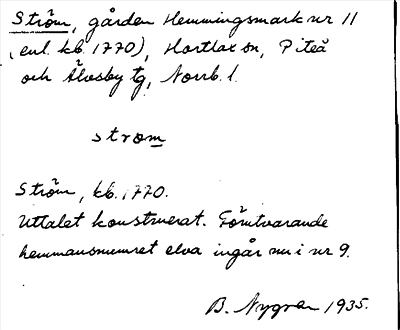 Ström, gården Hemmingsmark nr 11
(enl. kb. 1770), Hortlax sn, Piteå
och Älvsby tg, Norrb. l.
strom
Ström, kb. 1770.
Uttalet konstruerat. Förutvarande
hemmansnumret elva ingår nu i nr 9.
B. Nygren 1935.